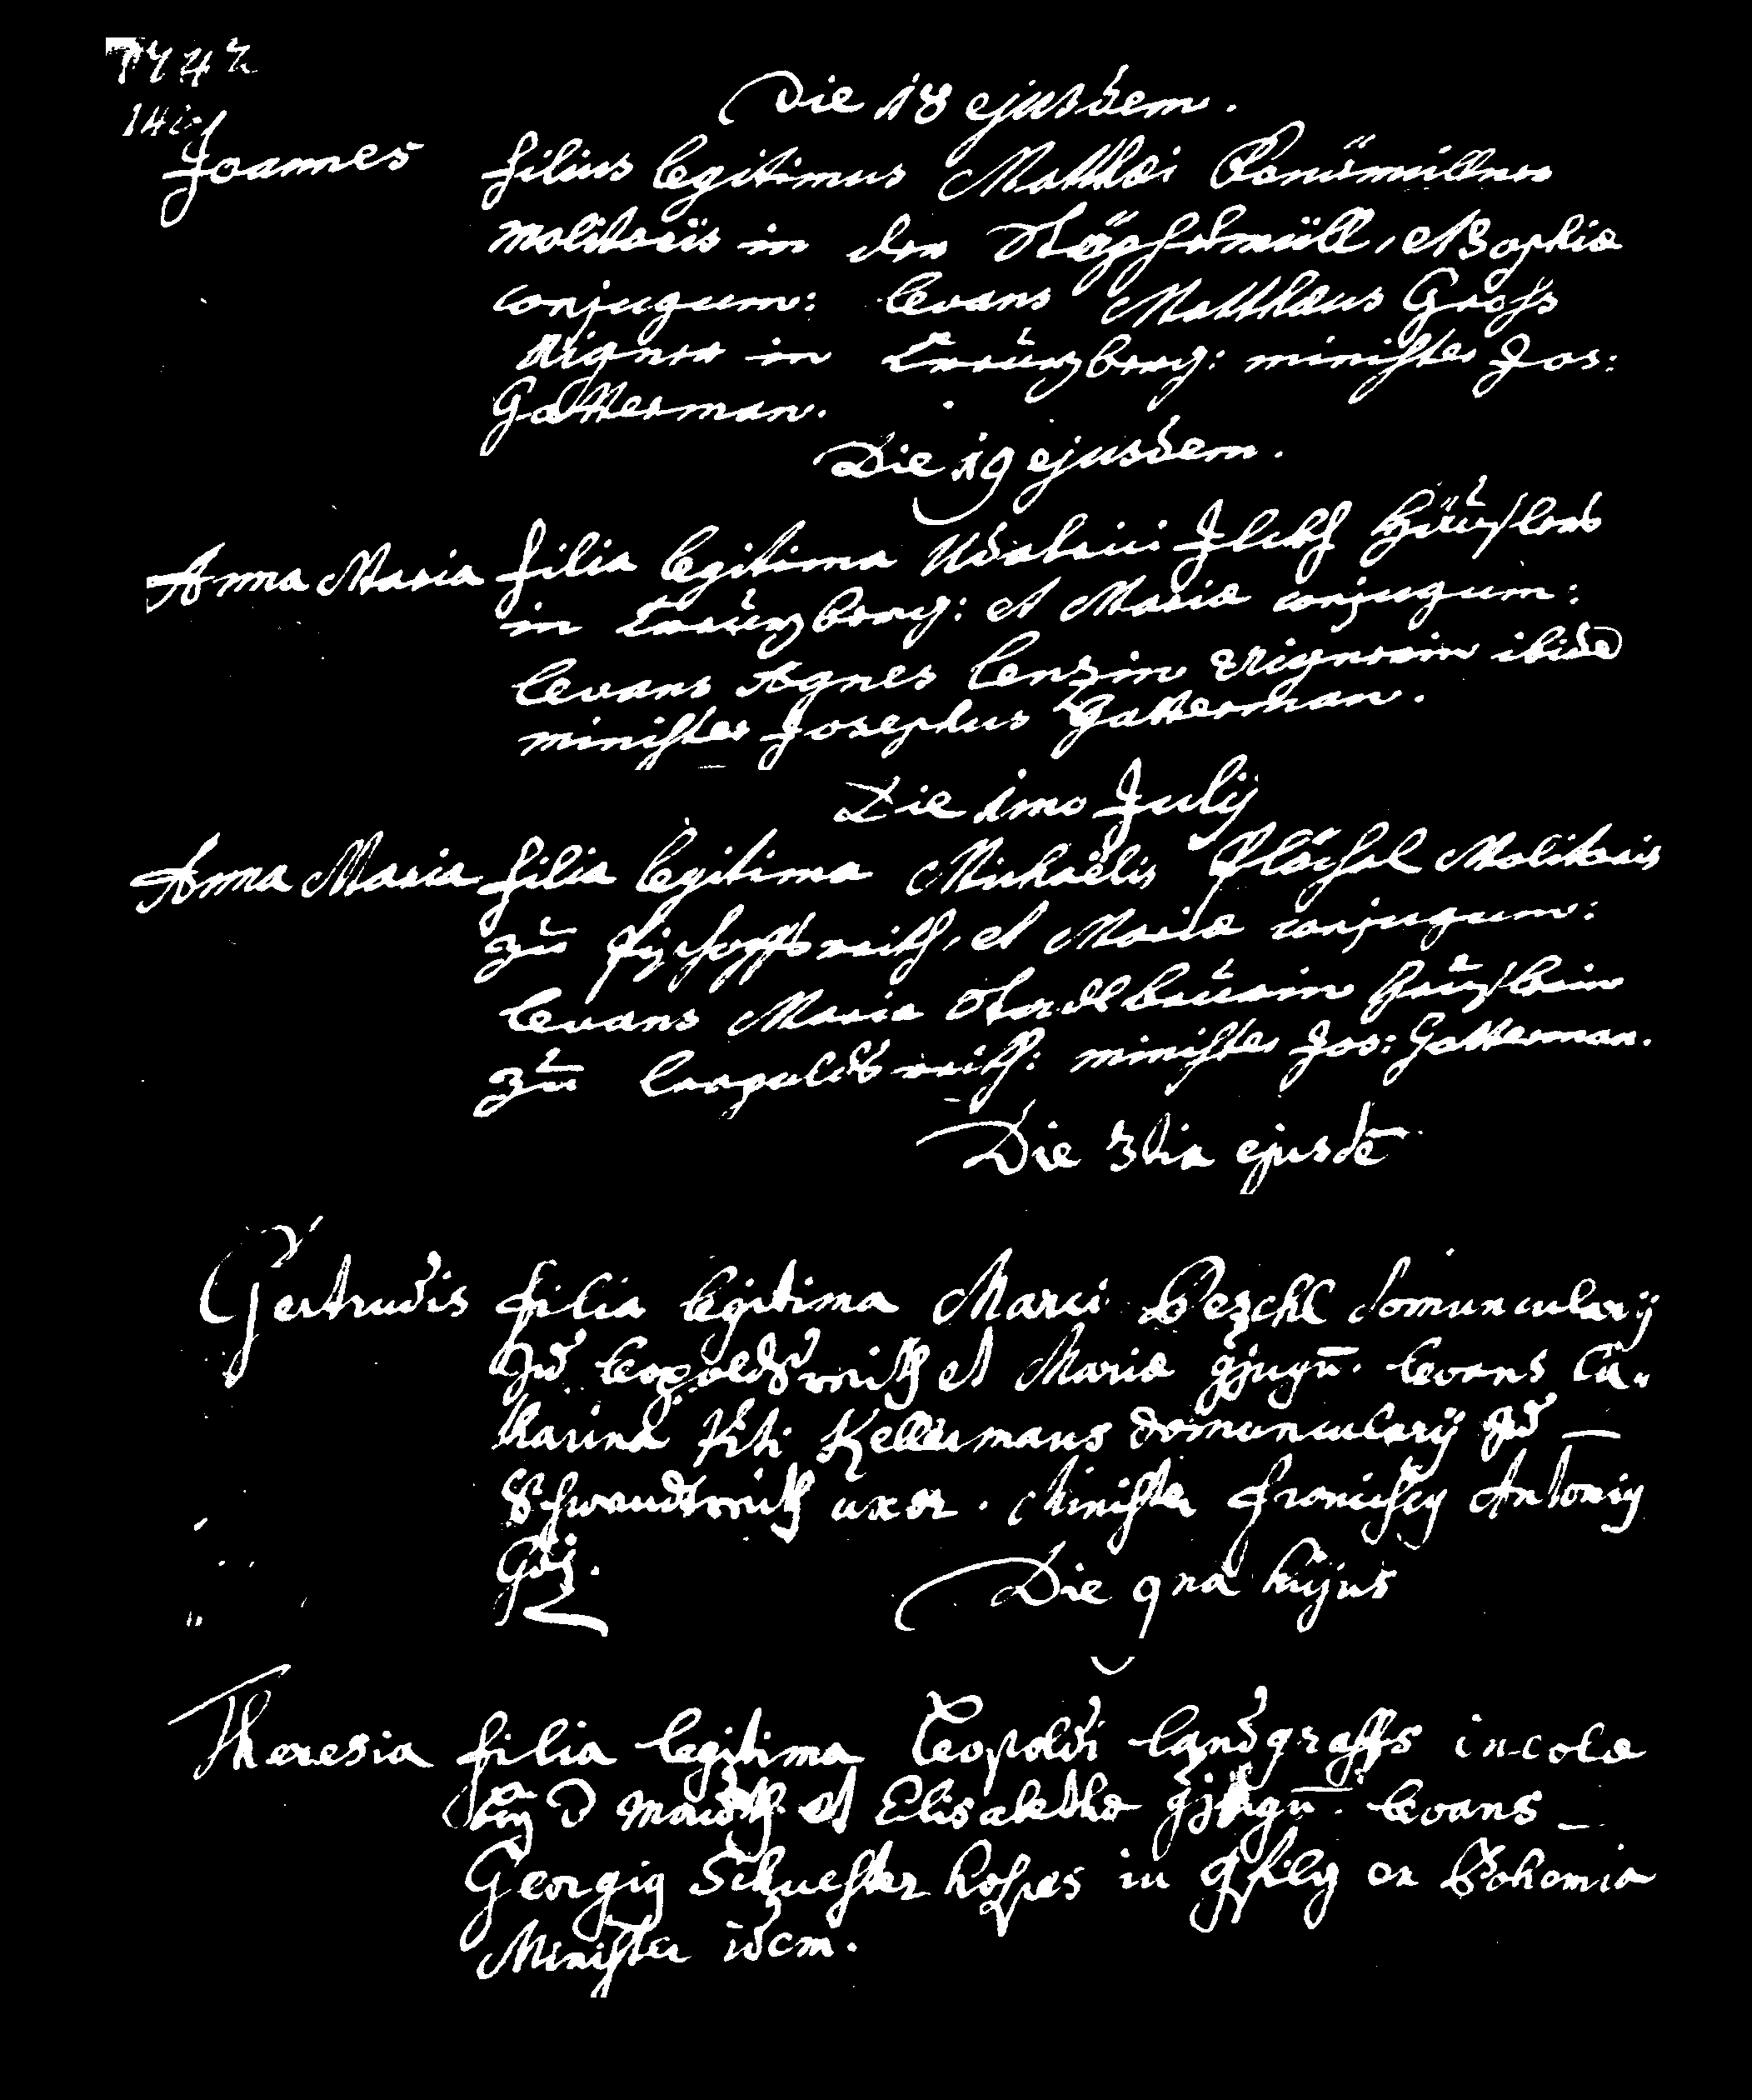 1742
Die 18 ejusdem.
Joannes filius legitimus Matthæi
molitoris in der et Sophiæ
conjugum: levans Matthæus Groß
in Creüzberg: minister Jos:
Gatterman.
Die 19 ejusdem.
Anna Maria filia legitima Udalrici Häußlers
in Creüzberg: et Mariæ conjugum:
levans Agnes Lenzin ibidē
minister Josephus Gatterman.
Die 1mo Julij
Anna Maria filia legitima Michaëlis Molitoris
zu et Mariæ conjugum:
levans Maria Häußlerin
zu Leopoldsreith: minister Jos: Gatterman.
Die 3tia ejusdē
Gertrudis filia legitima Marci Peschl domuncularij
zu Leopoldsreith et Mariæ levans Ca-
tharina Viti Kellermans domuncularij zu
Schwendtreith uxor. Minister Francisc9 Antoni9
Göz.
Die 9na hujus
Theresia filia legitima Leopoldi Landgraffs incolæ
et Elisabethæ levans
Georgi9 Schuester hospes in ex Bohemia
Minister idem.